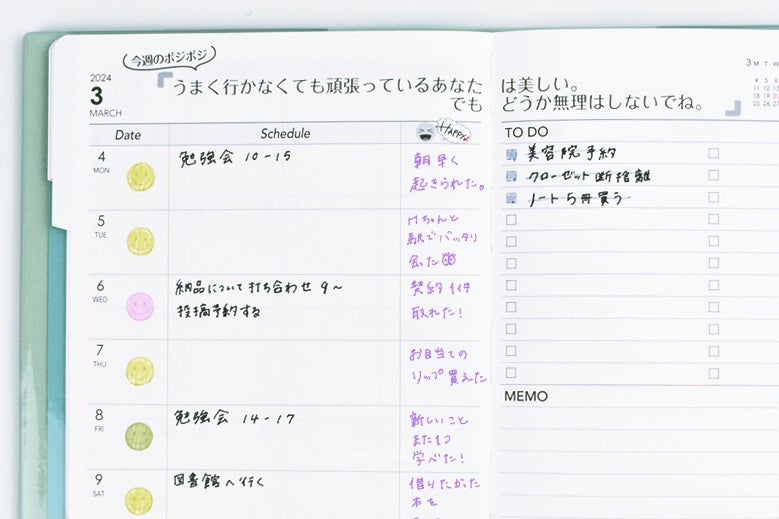 今週のポジポジ
うまく行かなくても頑張っているあなた
でも
は美しい。
どうか無理はしないでね。
2024
3
MARCH
3 M T W
4 5 6
11 12 13
18 19 20
25 26 27
Date Schedule HAPPY
4
MON
勉強会 10-15
朝早く
起きられた。
5
TUE
Kちゃんと
駅でバッタリ
会った
6
WED
納品について打ち合わせ 9〜
投稿予約する
契約 1件
取れた!
7
THU
お目当ての
リップ買えた
8
FRI
勉強会 14-17
新しいこと
また1つ
学べた!
9
SAT
図書館へ行く
借りたかった
本を
TO DO
美容院予約
クローゼット断捨離
ノート5冊買う
MEMO